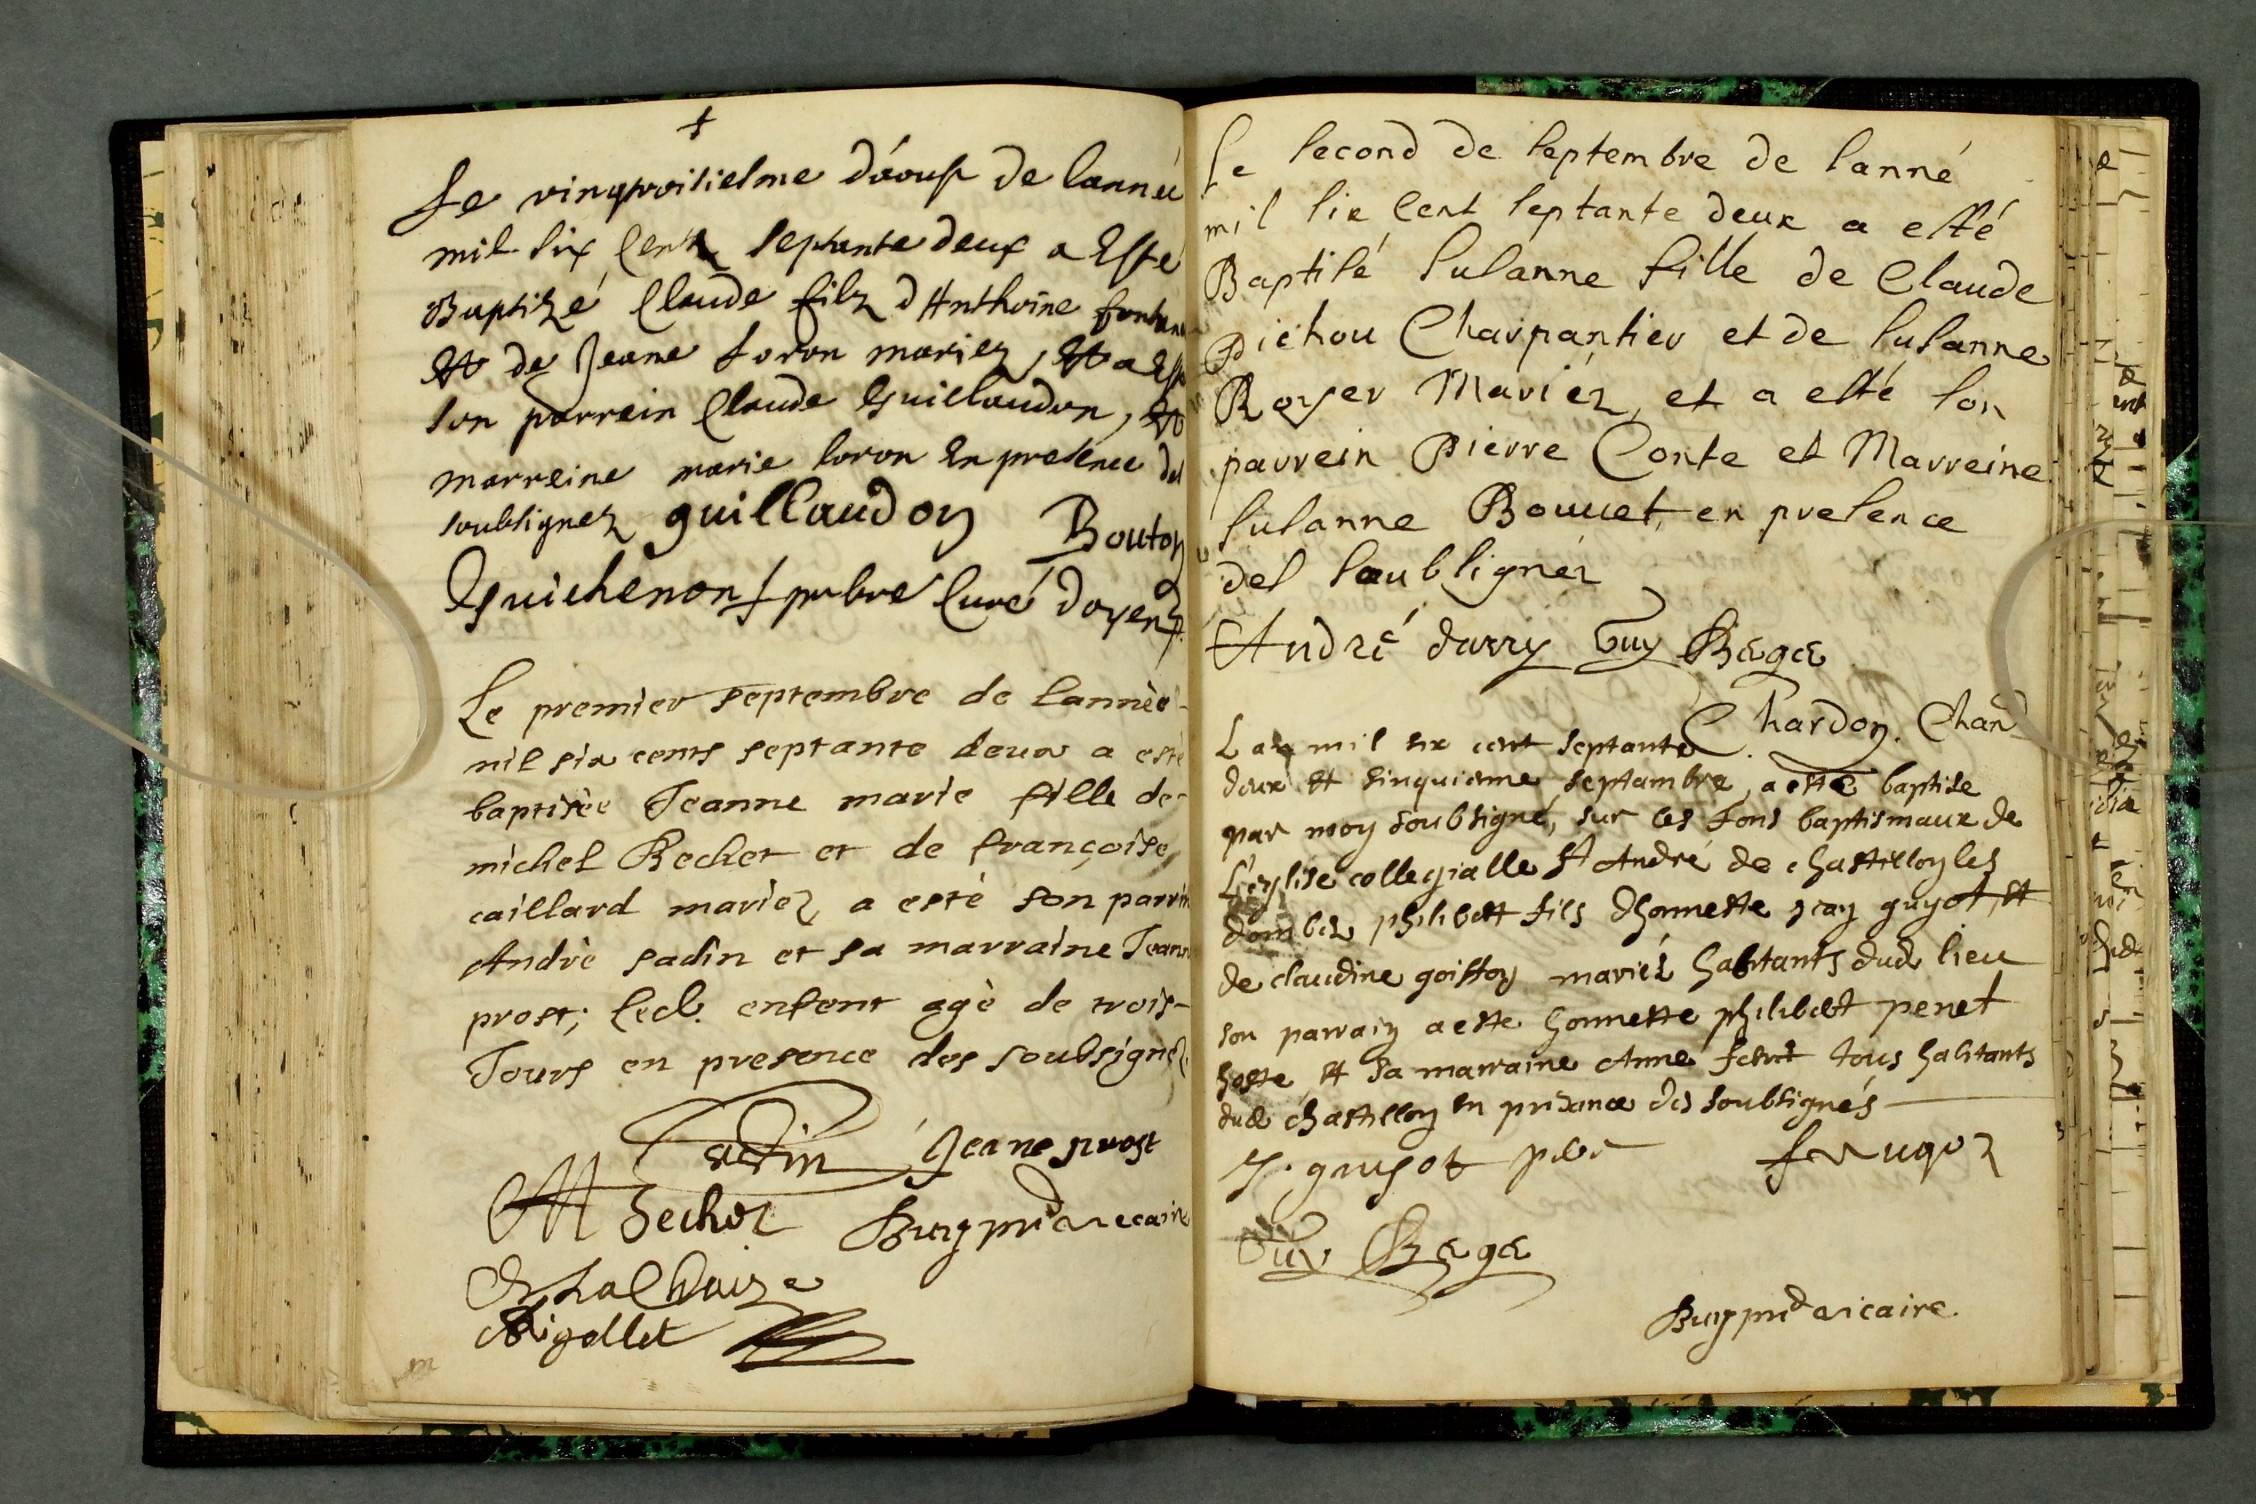 Le vingtroisiesme d'áoust de lanneé
mil six Cents septante deux a Esté
Baptizé Claude filz d'Anthoine fontan
Et de Jeane Loron mariez, Et a Esté
son parrein Claude Guillaudon, Et
marreine marie loron En presence des
soubsignez guillaudon Bouton
Guichenon pbre Curé doyen
Le premier septembre de lannèe
mil six cents septante deux a estè
baptisèe Jeanne marie fille de
michel Becher et de françoise
caillard mariez, a estè son parrin
Andrè sadin et sa marraine Jeann
prost; led. enfent agè de trois
Jours en presence des soubsignéz
sadin Jeane prost
M Becher Burg prd vicaire
De La Chaize
Rigollet
Le second de septembre de lanné
mil six Cent septante deux a esté
Baptisé susanne fille de Claude
Pichou Charpantier et de susanne
Royer Mariéz, et a esté son
parrein Pierre Conte et Marreine
susanne Bouuet, en presence
des soubsignéz
André darry Guy Bege
Chardon. Chan
Lan mil six cent septante
deux et sinquieme septambre, a esté baptise
par moy soubsigné, sur les fons baptismaux de
L'eglise collegialle St André de chastillon les
dombes philibert fils dhonneste jean guyot, et
de claudine goiffon mariés habitants dud lieu
son parrain a este honneste philibert penet
hoste et sa marraine Anne feret tous habitants
dud chastillon en presance des soubsignés
J. guyot pbr
Guy Bege
Burg prd vicaire.